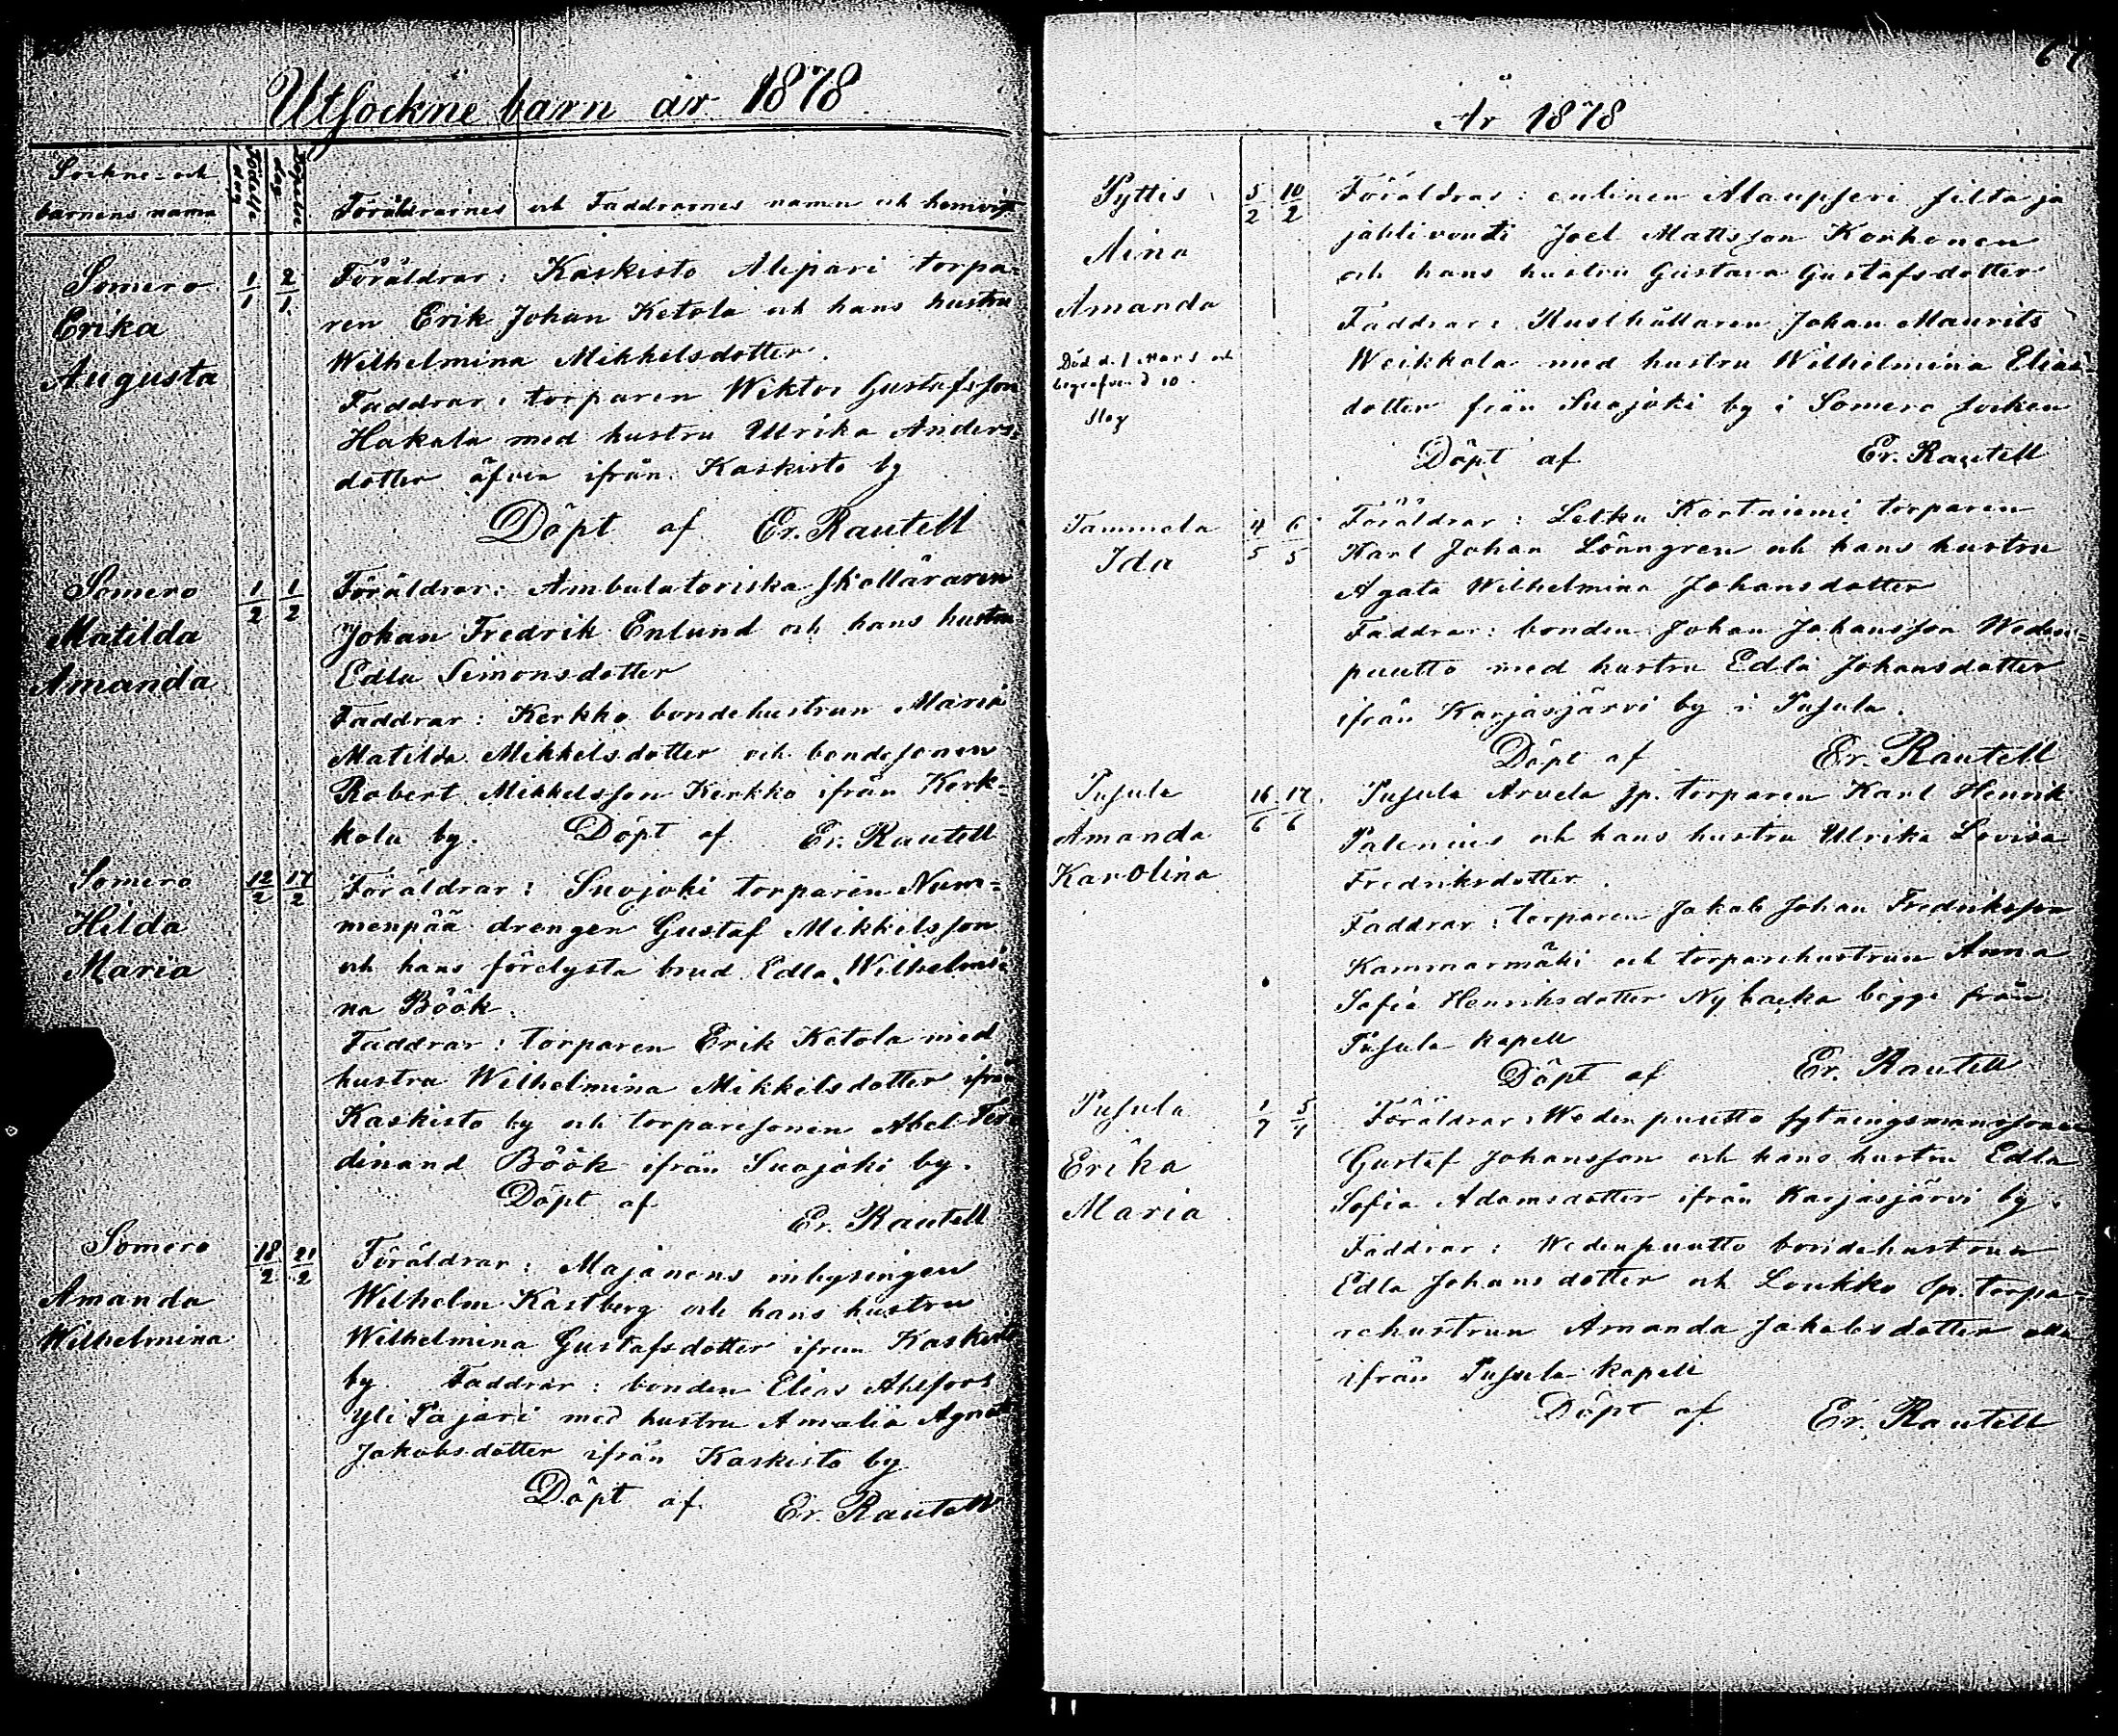 Utsockne barn år 1878
Sockne- och
barnens namn
Födelse
dag
Döpelse
dag
Föräldrarnes och Faddrarnes namn och hemvist
Somero
Erika
Augusta
1/1 2/1
Föräldrar: Kaskisto Alipari torpa=
ren Erik Johan Ketola och hans hustru
Wilhelmina Mikkelsdotter.
Faddrar: torparen Wiktor Gustafsson
Hakala med hustru Ulrika Anders=
dotter äfven ifrån Kaskisto by
Döpt af Er. Rautell
Somero
Matilda
Amanda
1/2 1/2
Föräldrar: Ambulatoriska skolläraren
Johan Fredrik Enlund och hans hustru
Edla Simonsdotter
Faddrar: Kerkko bondehustrun Maria
Matilda Mikkelsdotter och bondesonen
Robert Mikkelsson Kerkko ifrån Kerk=
kola by. Döpt af Er. Rautell
Somero
Hilda
Maria
12/2 17/2
Föräldrar: Suojoki torparen Num=
menpää drengen Gustaf Mikkelsson
och hans förelysta brud Edla Wilhelmi=
na Böök.
Faddrar: torparen Erik Ketola med
hustru Wilhelmina Mikkelsdotter ifrån
Kaskisto by och torparesonen Abel Fer=
dinand Böök ifrån Suojoki by.
Döpt af
Er. Rautell
Somero
Amanda
Wilhelmina
18/2 21/2
Föräldrar: Majanens inhysingen
Wilhelm Kastberg och hans hustru
Wilhelmina Gustafsdotter ifrån Kaskisto
by. Faddrar: bonden Elias Ahlfors
Yli Pajari med hustru Amalia
Jakobsdotter ifrån Kaskisto by
Döpt af Er. Rautell
År 1878
Pyttis
Aina
Amanda
Död d. 1 Mars och
begrafven d 10
5/2 10/2
Föräldrar: entinen silta ja
jahtivouti Joel Mattsson Korhonen
och hans hustru Gustava Gustafsdotter
Faddrar: Rusthållaren Johan Maurits
Weikkola med hustru Wilhelmina Elias=
dotter från Suojoki by i Somero socken
Döpt af Er. Rautell
Tammela
Ida
4/5 6/5
Föräldrar: Letku Kortniemi torparen
Karl Johan Lönngren och hans hustru
Agata Wilhelmina Johansdotter
Faddrar: bonden Johan Johansson Weden=
puutto med hustru Edla Johansdotter
ifrån Karjasjärvi by i Pusula.
Döpt af Er. Rautell
Pusula
Amanda
Karolina
16/6 17/6
Pusula Arvela sp. torparen Karl Henrik
Palenius och hans hustru Ulrika Lovisa
Fredriksdotter.
Faddrar: torparen Jakob Johan Fredriksson
Kammarmäki och torparehustrun Anna
Sofia Henriksdotter Nybacka bägge från
Pusula kapell
Döpt af Er. Rautell
Pusula
Erika
Maria
1/7 5/7
Föräldrar: Wedenpuutto sytningsmanssonen
Gustaf Johansson och hans hustru Edla
Sofia Adamsdotter ifrån Karjasjärvi by.
Faddrar: Wedenpuutto bondehustrun
Edla Johansdotter och Loukko sp. torpa=
rehustrun Amanda Jakobsdotter alla
ifrån Pusula kapell
Döpt af Er. Rautell